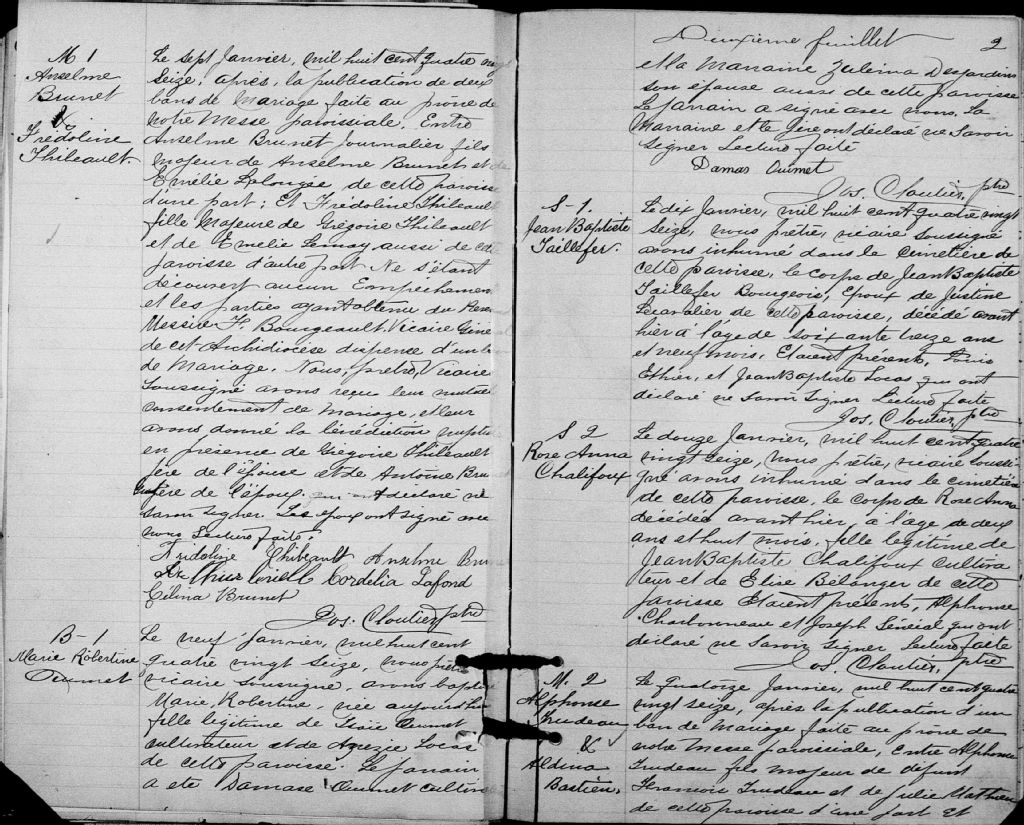 M 1
Anselme
Brunet
&
Frédoline
Thibeault.
Le sept Janvier, mil huit cent quatre vingt
seize, après, la publication de deux
bans de Mariage faite au prône de
notre Messe paroissiale, Entre
Anselme Brunet Journalier fils
Majeur de Anselme Brunet et de
Emélie Lelongée, de cette paroisse
d'une part; Et Frédoline Thibeault
fille Majeure de Grégoire Thibeault
et de Emélie Lemay, aussi de cette
paroisse d'autre part Ne s'étant
découvert aucun Empêchement
et les parties ayant obtenu du Rév
Messire F. Bourgeault Vicaire Général
de cet Archidiocèse dispense d'un ban
de Mariage. Nous, prêtre, Vicaire
Soussigné avons reçu leur mutuel
consentement de Mariage, et leur
avons donné la bénédiction nuptiale
en présence de Grégoire Thibeault
père de l'épouse et de Antoine Brunet
frère de l'époux qui ont déclaré ne
savoir signer. Les époux ont signé avec
nous Lecture faite.
Fridoline Thibeault Anselme Brunet
Cordelia Lafond
Célina Brunet
Jos. Cloutier, ptre
B-1
Marie Robertine
Ouimet
Le neuf Janvier, mil huit cent
quatre vingt seize, nous prêtre
vicaire soussigné, avons baptisé
Marie, Robertine, née aujourd'hui
fille légitime de Isaïe Ouimet
cultivateur et de Agnézie Locas
de cette paroisse. Le parrain
a été Damase Ouimet cultiva
Deuxième feuillet 2
et la Marraine Zulema Desjardins
son épouse aussi de cette paroisse
Le parrain a signé avec nous. La
Marraine et le père ont déclaré ne savoir
signer Lecture faite
Damas Ouimet
Jos. Cloutier, ptre
S-1.
Jean Baptiste
Taillefer.
Le dix Janvier, mil huit cent quatre vingt
seize, nous prêtre, vicaire soussigné
avons inhumé dans le cimetière de
cette paroisse, le corps de Jean Baptiste
Taillefer Bourgeois, Epoux de Justine
Lecavalier de cette paroisse, décédé avant
hier à l'âge de soixante treize ans
et neuf mois. Etaient présents, Louis
Ethier, et Jean Baptiste Locas qui ont
déclaré ne savoir signer Lecture faite
Jos. Cloutier, ptre
S 2
Rose Anna
Chalifoux
Le douze Janvier, mil huit cent quatre
vingt seize, nous prêtre, vicaire soussi-
gné avons inhumé dans le cimetière
de cette paroisse, le corps de Rose Anna
décédée avant hier, a l'âge de deux
ans et huit mois, fille légitime de
Jean Baptiste Chalifoux Cultiva
teur et de Elise Bélanger de cette
paroisse Etaient présents, Alphonse
Charbonneau et Joseph Sénécal qui ont
déclaré ne savoir signer Lecture faite
Jos. Cloutier, ptre
M. 2
Alphonse
Trudeau
&
Aldina
Bastien.
Le quatorze Janvier, mil huit cent quatre
vingt seize, après la publication d'un
ban de Mariage faite au prône de
notre Messe paroissiale, Entre Alphonse
Trudeau fils majeur de défunt
François Trudeau et de Julie Mathieu
de cette paroisse d'une part Et